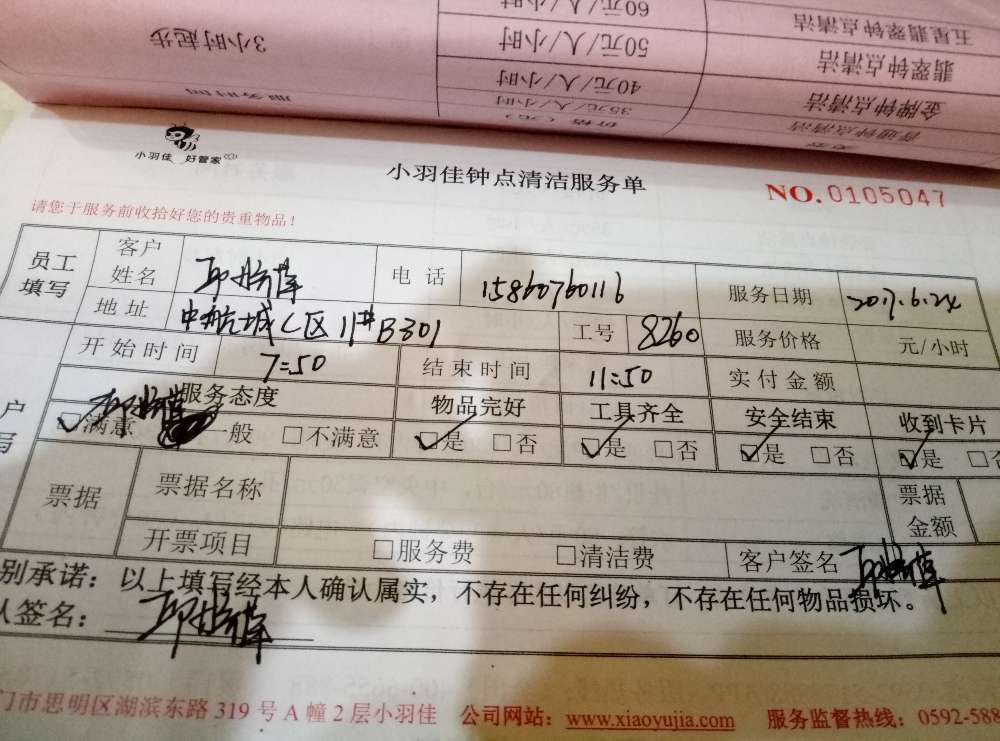 60元/人/小时
五星翡翠钟点清洁
3小时起步
50元/人/小时
翡翠钟点清洁
40元/人/小时
金牌钟点清洁
服务时间
35元/人/小时
普通钟点清洁
价格(元)
小羽佳 好管家
小羽佳钟点清洁服务单
NO.0105047
请您于服务前收拾好您的贵重物品!
员工填写
客户姓名
电话 15860760116
服务日期 2017.6.24
地址 中航城C区11#B301
工号 8260
服务价格 元/小时
开始时间 7:50
结束时间 11:50
实付金额
服务态度 物品完好 工具齐全 安全结束 收到卡片
☑满意 一般 □不满意 ☑是 □否 ☑是 □否 ☑是 □否 ☑是 □否
票据 票据名称 票据金额
开票项目 □服务费 □清洁费 客户签名
别承诺:以上填写经本人确认属实,不存在任何纠纷,不存在任何物品损坏。
人签名:
门市思明区湖滨东路 319 号 A 幢 2 层小羽佳 公司网站:www.xiaoyujia.com 服务监督热线:0592-588